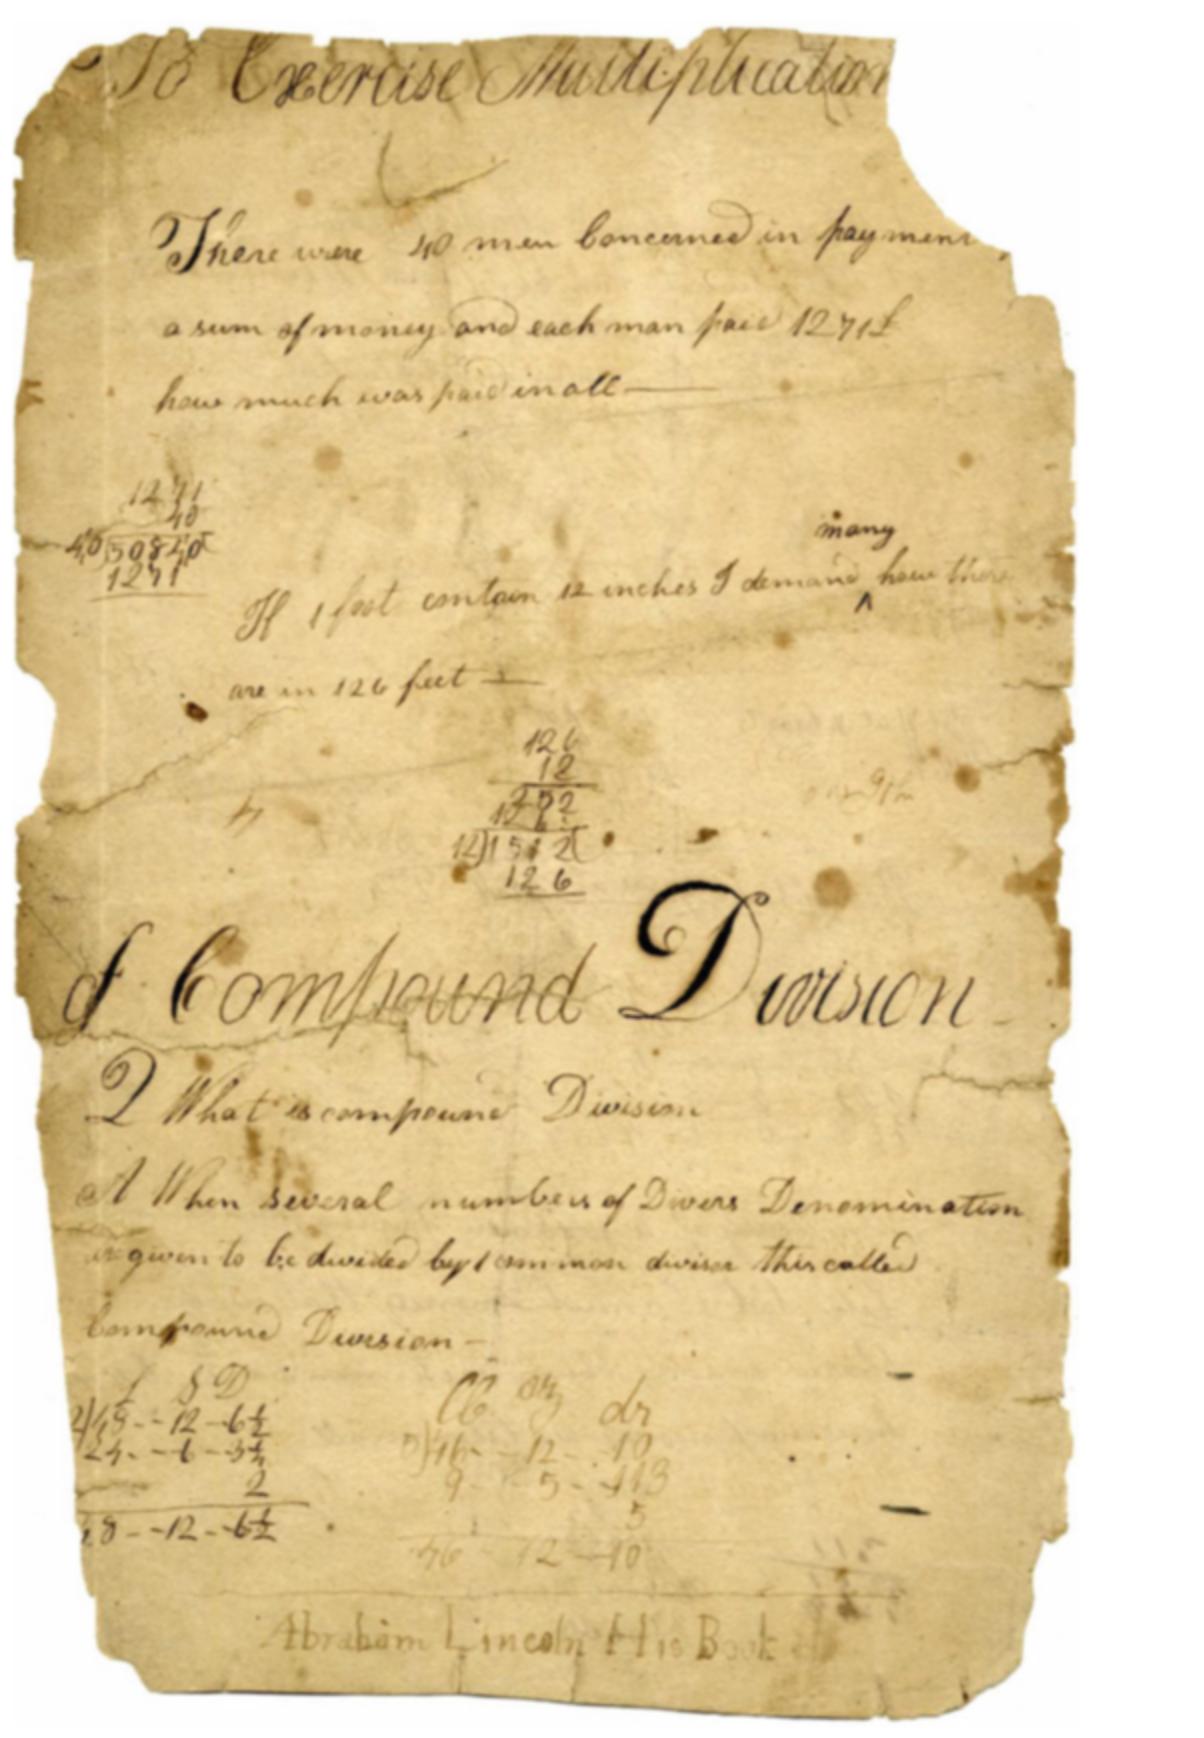 To Exercise Multiplication
There were 40 men Concerned in payment
a sum of money and each man paid 1271£
how much was paid in all —
1271
40
40)50840(
1271
many
If 1 foot contain 12 inches I demand ^ how there
are in 126 feet —
126
12
252
12)1512(
126
of Compound Division
Q What is compound Division
A When several numbers of Divers Denomination
are given to be divided by 1 common divisor this called
Compound Division —
£ S D
2)48 -- 12 - 6 1/2
24 -- 6 - 3 1/4
2
48 -- 12 - 6 1/2
lb oz dr
5)46 - 12 - 10
9 - 5 -
5
46 - 12 - 10
Abraham Lincoln His Book